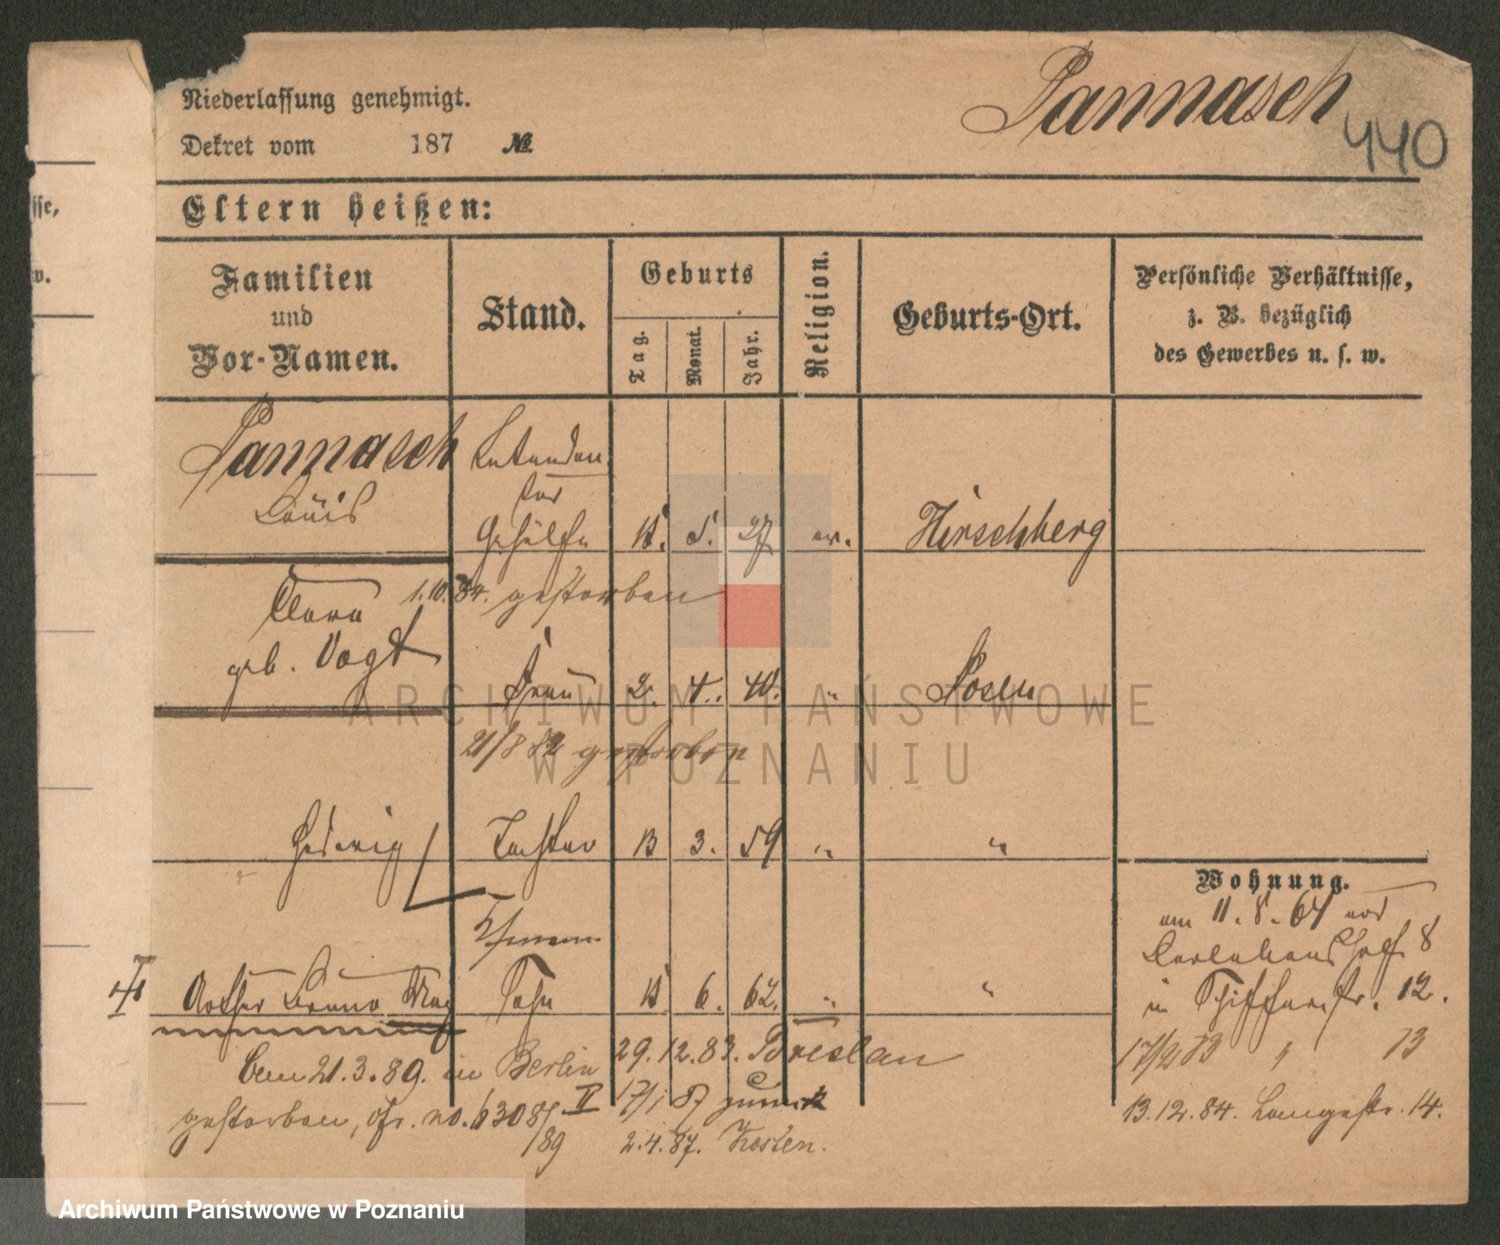 Niederlassung genehmigt.
Dekret vom 187 №
Pannasch
440
Eltern heißen:
Familien
und
Vor-Namen.
Stand.
Geburts
Tag.
Monat.
Jahr.
Religion.
Geburts-Ort.
Persönliche Verhältnisse,
z. B. bezüglich
des Gewerbes u. s. w.
sse,
w.
Pannasch
Louis
Gehülfe
5. 27 ev. Hirschberg
1.10.84. gestorben
Clara
geb. Vogt
Frau 2. 4. 40. " Posen
21/8 82 gestorben
Hedwig Tochter 13 3. 59 " "
Wohnung.
am 11. 8. 67 von
8
in Schifferstr. 12.
Arthur Bruno Max Sohn 6. 62. " "
29.12.83. Breslau
17/2 83 " 13
21.3.89. in Berlin
17/1 87 zurück
gestorben, No. 6308/89 IV
13.12.84. Langestr. 14.
2.4.87. Kosten.
ARCHIWUM PAŃSTWOWE
W POZNANIU
Archiwum Państwowe w Poznaniu